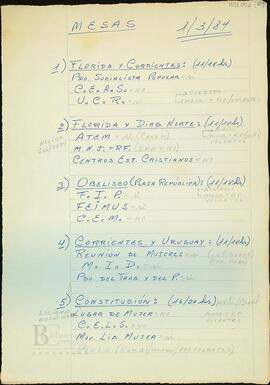 MESAS 1/3/84
1) FLORIDA Y CORRIENTES: (11/18 hs)
PDO. SOCIALISTA POPULAR = si
C.E.A.S. = NO
U.C.R. = si
2) FLORIDA Y DIAG. NORTE: (11/18 hs)
ATEM = si
M.N.J. = RF.
CENTROS EST. CRISTIANOS = NO
3) OBELISCO (PLAZA REPÚBLICA): (11/18 hs)
F.I.P. = si
FEIMUS = si
C.E.M. = NO
4) CORRIENTES Y URUGUAY: (11/18 hs)
REUNIÓN DE MUJERES = si
M.I.D. = si
PDO. DEL TRAB. Y DEL P. = si
5) CONSTITUCIÓN: (16/20 hs)
LUGAR DE MUJER = NO
C.E.L.S. = NO
MOV. LIB. MUJER = si